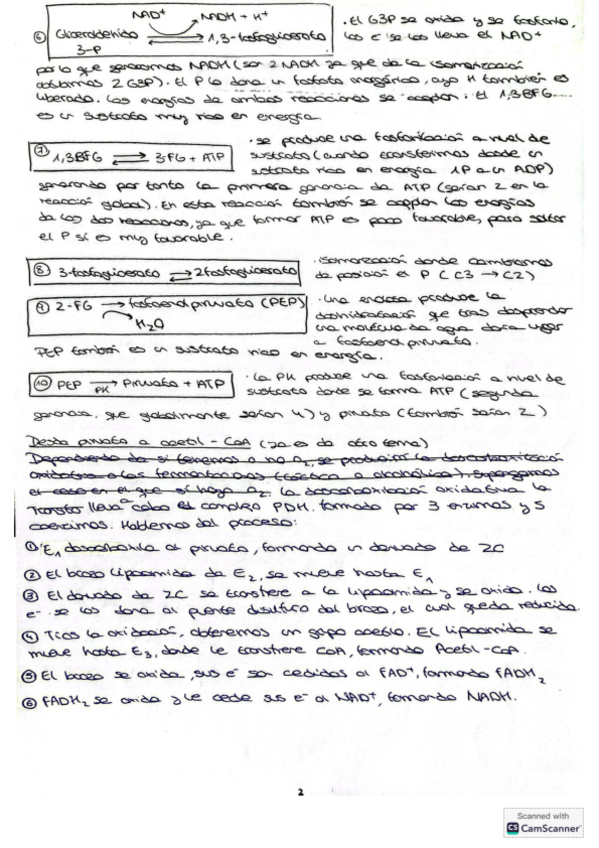 NAD⁺ NADH + H⁺
⑥ Gliceraldehido 3-P ⇌ 1,3-bisfosfoglicerato
· El G3P se oxida y se fosforila,
los e⁻ se los lleva el NAD⁺
por lo que generamos NADH (son 2 NADH ya que de la isomerización
obtenemos 2 G3P). El P lo dona un fosfato inorgánico, cuyo H también es
liberado. Las energías de ambas reacciones se acoplan. El 1,3BFG....
es un sustrato muy rico en energía.
⑦ 1,3BFG ⇌ 3-FG + ATP
· se produce una fosforilación a nivel de
sustrato (cuando transferimos desde un
sustrato rico en energía 1P a un ADP)
generando por tanto la primera ganancia de ATP (serían 2 en la
reacción global). En esta reacción también se acoplan las energías
de las dos reacciones, ya que formar ATP es poco favorable, pero soltar
el P sí es muy favorable.
⑧ 3-fosfoglicerato ⇌ 2fosfoglicerato
· isomerización donde cambiamos
de posición el P (C3 → C2)
⑨ 2-FG → fosfoenolpiruvato (PEP)
H₂O
· una enolasa produce la
deshidratación que tras desprender
una molécula de agua dará lugar
a fosfoenolpiruvato.
PEP también es un sustrato rico en energía.
⑩ PEP → PK Piruvato + ATP
· La PK produce una fosforilación a nivel de
sustrato donde se forma ATP (segunda
ganancia, que globalmente serían 4) y piruvato (también serían 2)
Desde piruvato a acetil-CoA (ya es de otro tema)
Dependiendo de si tenemos o no O₂, se producirá la descarboxilación
oxidativa o las fermentaciones (láctica o alcohólica). Supongamos
el caso en el que sí haya O₂. La descarboxilación oxidativa la
transfer lleva a cabo el complejo PDH, formado por 3 enzimas y 5
coenzimas. Hablemos del proceso:
① E₁ descarboxila al piruvato, formando un derivado de 2C
② El brazo lipoamida de E₂, se mueve hasta E₁
③ El derivado de 2C se transfiere a la lipoamida y se oxida. Los
e⁻ se los dona al puente disulfuro del brazo, el cual queda reducido.
④ Tras la oxidación, obtenemos un grupo acetilo. El lipoamida se
mueve hasta E₃, donde le transfiere CoA, formando Acetil-CoA.
⑤ El brazo se oxida, sus e⁻ son cedidos al FAD⁺, formando FADH₂
⑥ FADH₂ se oxida y le cede sus e⁻ al NAD⁺, formando NADH.
2
Scanned with
CS CamScanner